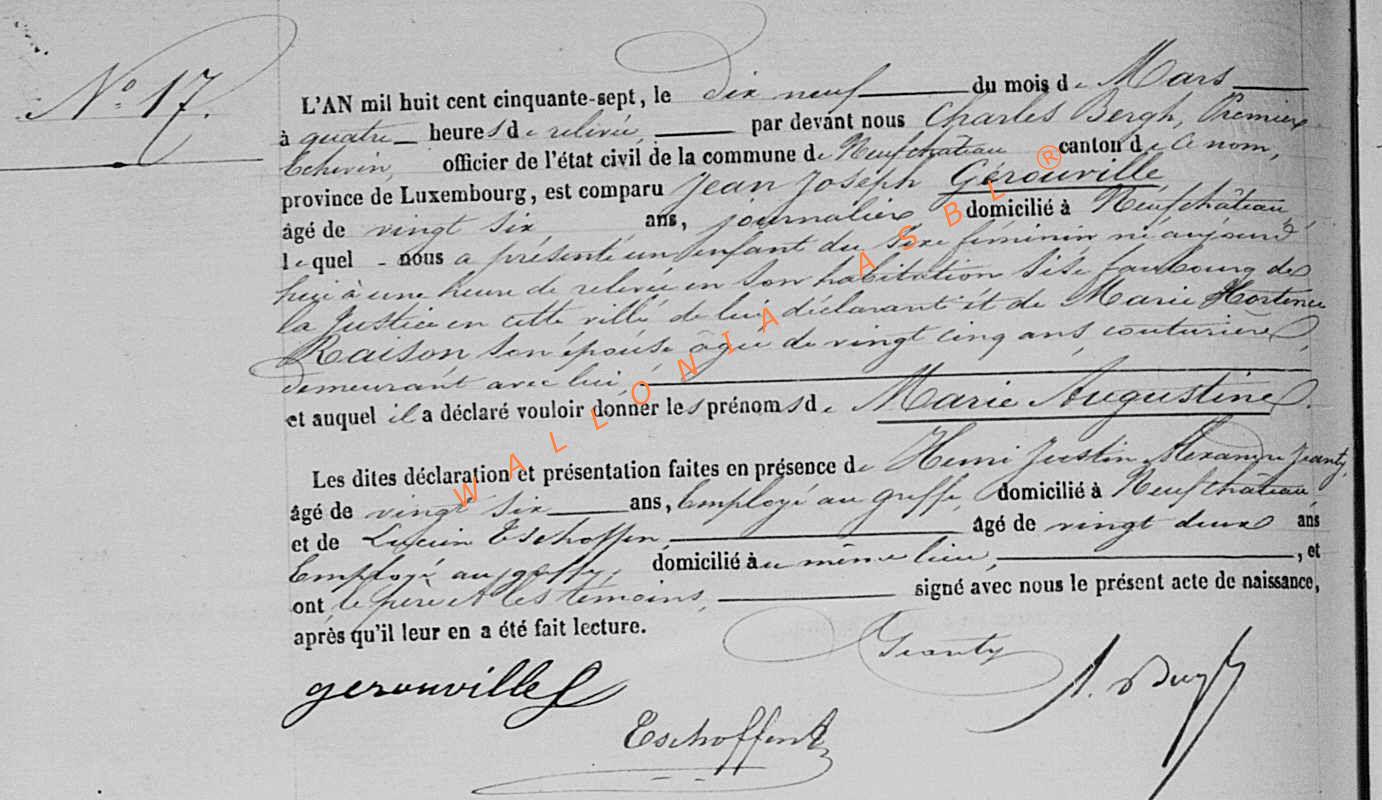 N° 17.
L'AN mil huit cent cinquante-sept, le dix neuf du mois de Mars
à quatre heures de relevée, par devant nous Charles Bergh, Premier
Echevin, officier de l'état civil de la commune de Neufchâteau canton de ce nom,
province de Luxembourg, est comparu Jean Joseph Gérouville,
âgé de vingt six ans, journalier, domicilié à Neufchâteau,
lequel nous a présenté un enfant du sexe féminin né aujourd'
hui à une heure de relevée en son habitation sise faubourg de
la Justice en cette ville de lui déclarant et de Marie Hortence
Raison son épouse âgée de vingt cinq ans, couturière,
demeurant avec lui,
et auquel il a déclaré vouloir donner les prénoms de Marie Augustine.
Les dites déclaration et présentation faites en présence de Henri Justin Alexandre Jeanty,
âgé de vingt six ans, Employé au greffe, domicilié à Neufchâteau
et de Lucien Eschoffen, âgé de vingt deux ans
Employé au greffe, domicilié au même lieu, , et
ont le père et les témoins, signé avec nous le présent acte de naissance,
après qu'il leur en a été fait lecture.
Jeanty
gerouville
Eschoffen
WALLONIA ASBL ®